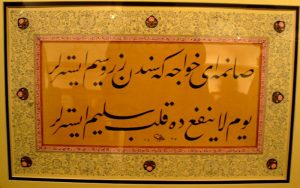 صانمه ای خواجه که سندن زر و سیم ایسترلر
یوم لا ینفع ده قلب سلیم ایسترلر